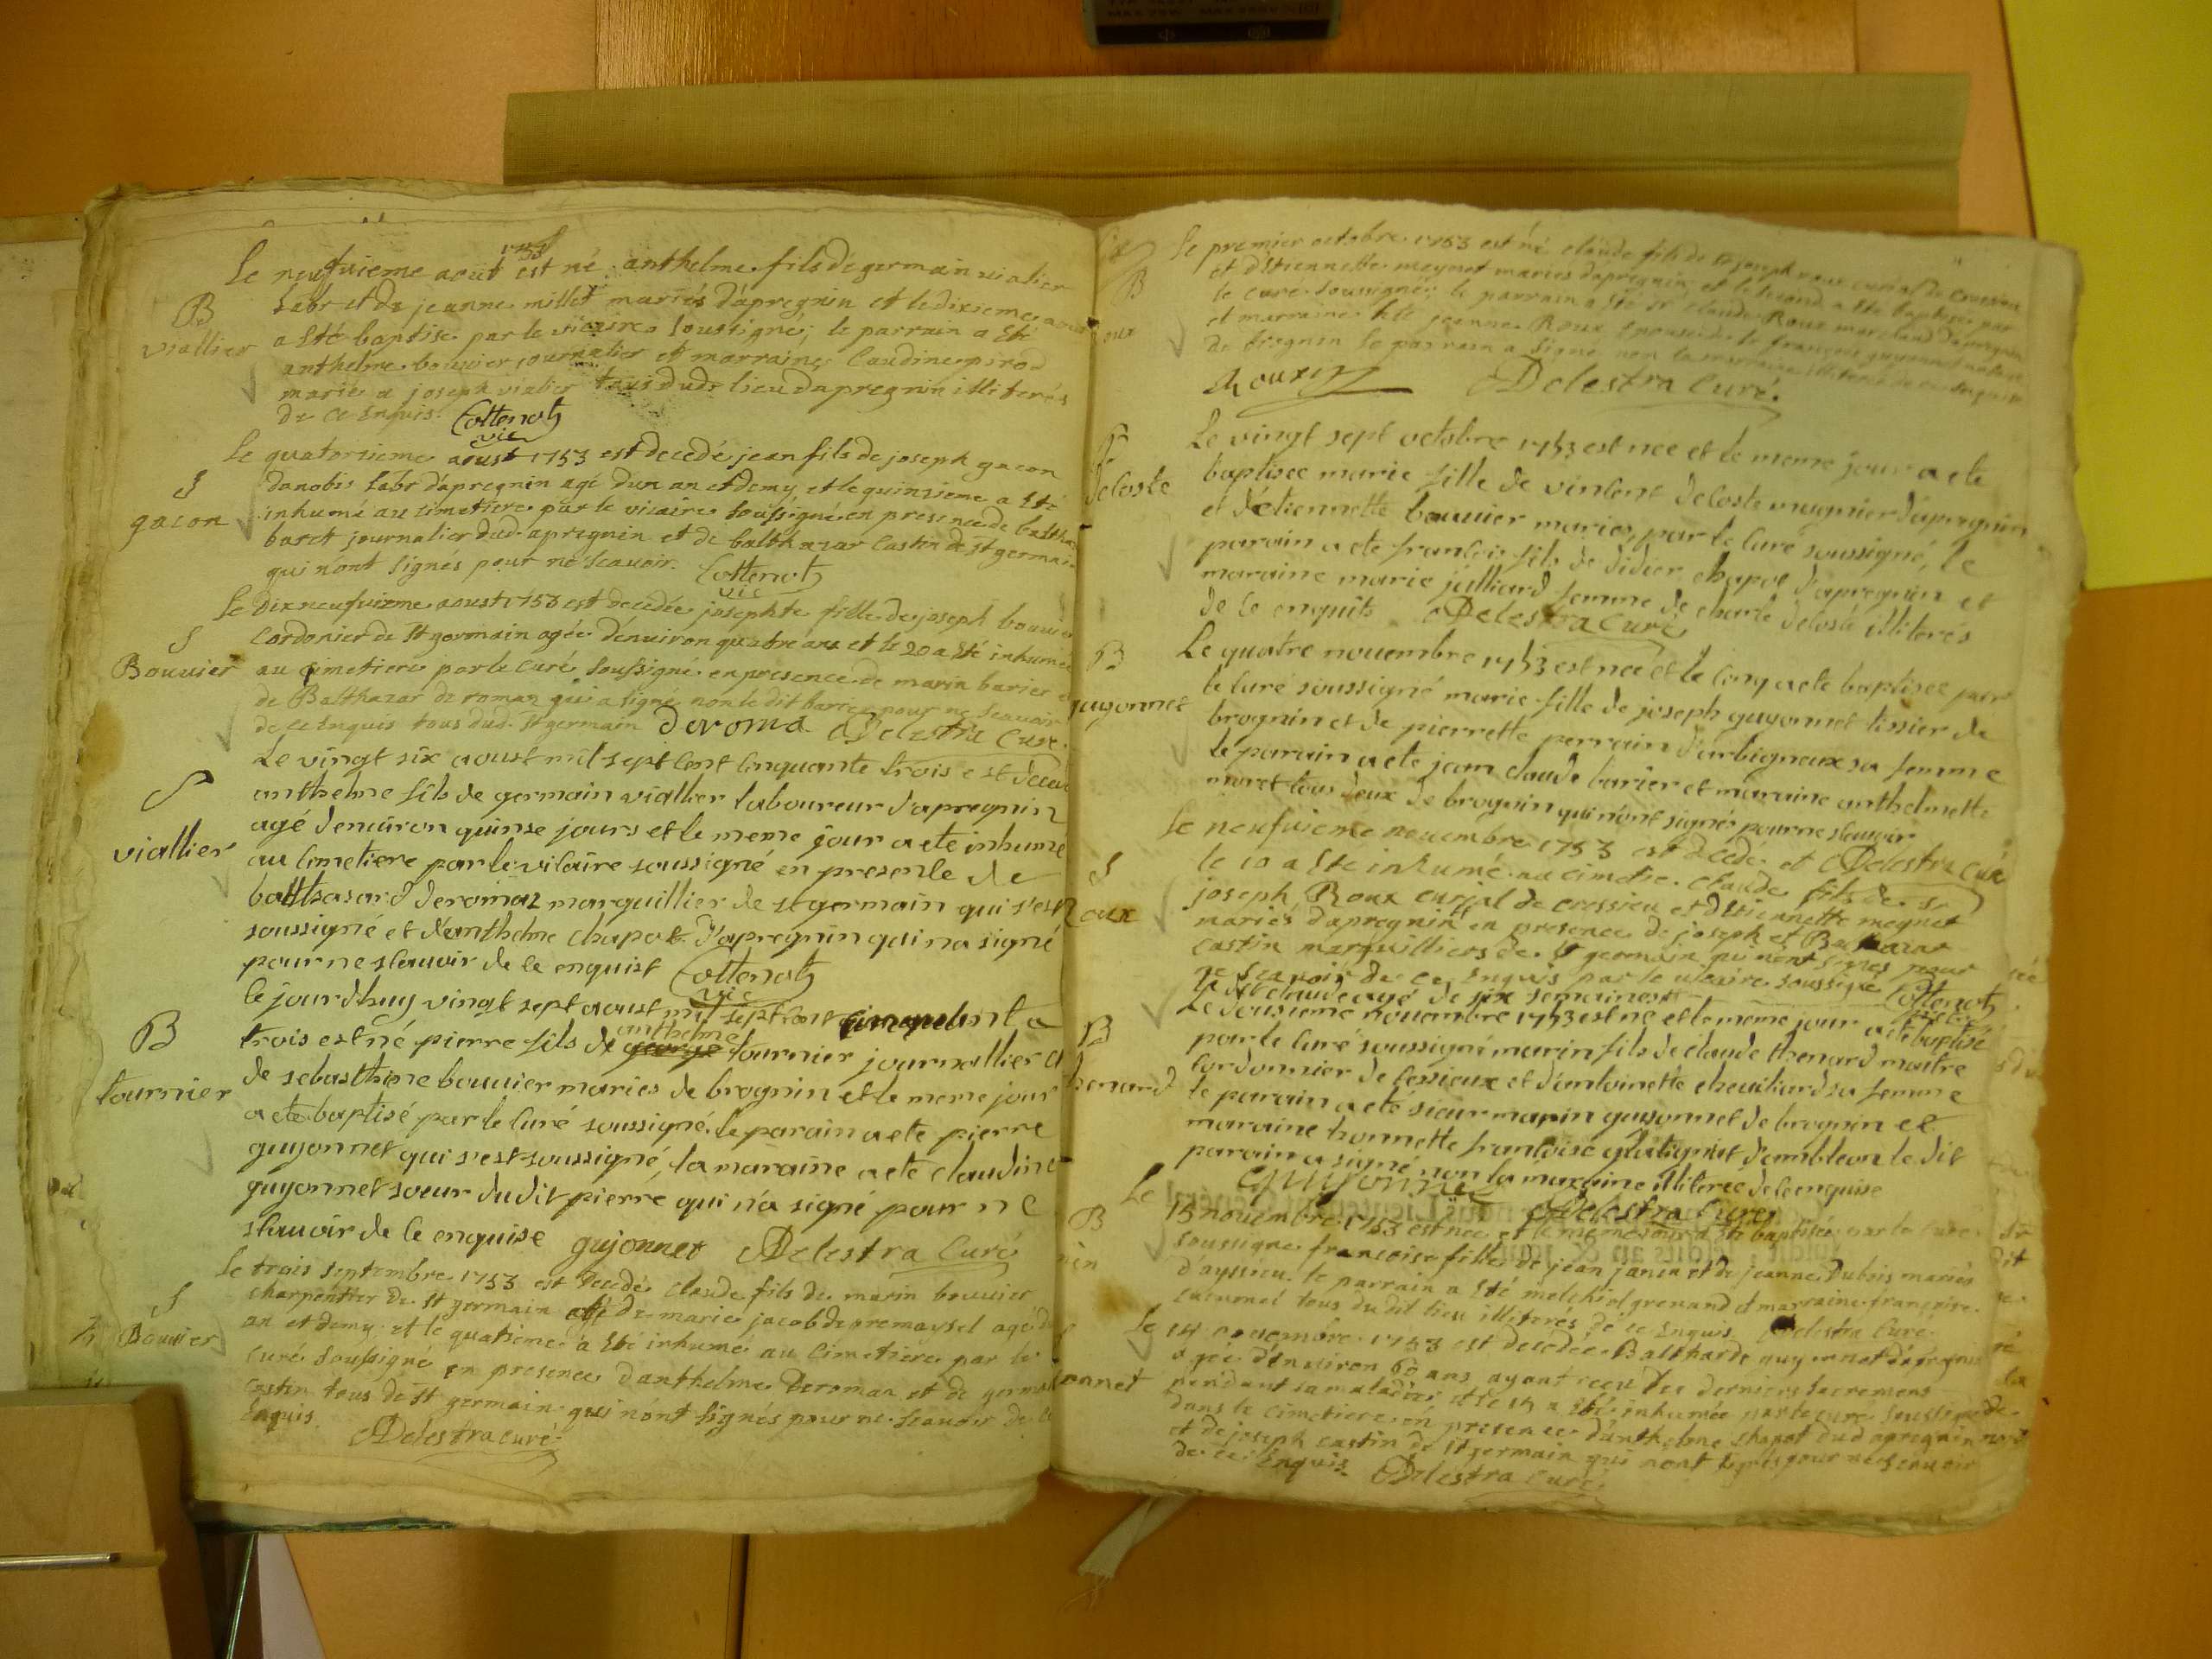 1753
Le neufvieme août est né anthelme fils de germain vialier
B
labr et de jeanne millet mariés d'apregnin et le dixieme aout
viallier
a eté baptise par le vicaire soussigné; le parrain a eté
anthelme bouvier journalier et marraine Caudine piron
mariée a joseph vialier tous dud. lieu d'apregnin illiterés
de ce Enquis. Cottenoth
vic
Le quatorsieme aoust 1753 est decedé jean fils de joseph gacon
S
danobis labr d'apregnin agé d'un an et demy, et le quinsieme a eté
gacon
inhumé au cimetiere par le vicaire soussigné en presence de
baret journalier dud. apregnin et de balthazar Castin de st germain
qui n'ont signés pour ne scavoir. Cottenoth
vic
Le dixneufvieme aoust 1753 est decedée josephte fille de joseph bouvier
S
Cordonier de St germain agée d'enuiron quatre ans et le 20 a eté inhumée
Bouvier
au cimetiere par le curé soussigné en presence de marin barier et
de Balthazar de romaz qui a signé non le dit barier pour ne scavoir
de ce Enquis tous dud. St germain Deroma Delestra Curé.
Le vingt six aoust mil sept cent cinquante trois est décédé
S
anthelme fils de germain viallier laboureur d'apregnin
agé d'enuiron quinse jours et le meme jour a ete inhumé
viallier
au cimetiere par le vicaire soussigné en presence de
balthasard deromaz marguillier de st germain qui s'est
soussigné et d'anthelme chapot d'apregnin qui n'a signé
pour ne scauoir de ce enquist Cottenoth
vic
le jourd'huy vingt sept aoust mil sept cent cinquante
B
anthelme
trois est né pierre fils de george tournier journallier et
tournier
de sebasthiene bouuier maries de brognin et le meme jour
a ete baptisé par le curé soussigné, le parain a ete pierre
guyonnet qui s'est soussigné, la maraine a ete claudine
guyonnet soeur du dit pierre qui n'a signé pour ne
scauoir de ce enquise gujonnet Delestra Curé
Le trois septembre 1753 est decedé claude fils de marin bouvier
S
charpentier de St germain et de marie jacob de premaysel agé d'un
Bouvier
an et demy et le quatrieme a eté inhumé au Cimetiere par le
curé soussigné en presence d'anthelme Deromaz et de germain
castin tous de St germain qui n'ont signés pour ne scauoir de ce
Enquis. Delestra curé
Le premier octobre 1753 est né claude fils de sr joseph roux curial de cressieu
B
et d'Etiennette meynet mariés d'apregnin, et le second a eté baptisé par
oux
le curé soussigné; le parrain a eté sr claude Roux marchand d'apregnin
et marraine jeanne Roux Epouse de sr françois guyonnet
de brognin le parrain a signé non la marraine illiterée de ce enquise
Rouxin Delestra Curé.
Le vingt sept octobre 1753 est nee et le meme jour a ete
deloste
baptisee marie fille de vincent deloste mugnier d'apregnin
et d'etiennette bouuier maries, par le curé soussigné, le
parain a ete francois fils de didier chapot d'apregnin et
maraine marie julliard femme de charle deloste illiterés
de ce enquits Delestra Curé
Le quatre nouembre 1753 est nee et le cinq a ete baptisee par
B
le curé soussigné marie fille de joseph guyonnet tissier de
guyonnet
brognin et de pierrette perrain d'arbigneux sa femme
le parain a ete jean claude barier et maraine anthelmette
moret tous deux de brognin qui n'ont signés pour ne scauoir
Delestra Curé
Le neufvieme nouembre 1753 est decedé et
S
le 10 a eté inhumé au cimetie. claude fils de sr
oux
joseph Roux curial de cressieu et d'Etiennette meynet
mariés d'apregnin en presence de joseph et Baltazar
castin marguilliers de St germain qui n'ont signés pour
ne scavoir de ce Enquis par le vicaire soussigné Cottenoth
le dit claude agé de six semaines
Le dousieme nouembre 1753 est né et le meme jour a ete baptisé
B
par le curé soussigné marin fils de claude thenard maitre
henard
cordonnier de cessieux et d'antoinette cheuiliard sa femme
le parain a eté sieur marin guyonnet de brognin et
maraine honnette francoise d'ambleon le dit
parain a signé non la maraine illiterée de ce enquise
guujonnet Delestra Curé
Le
B
15 nouembre 1753 est nee et le meme jour a eté baptisée par le curé
nin
soussigné francoise fille de jean janin et de jeanne Dubois mariés
d'ayssieu. le parrain a eté melchiol grenand et marraine francoise
tous du dit lieu illiterés de ce Enquis. Delestra Curé
Le 14 novembre 1753 est decedée Baltharde guyonnet d'apregnin
S
agée d'Enuiron 60 ans, ayant receu les derniers sacremens
onnet
pendant sa maladie, et le 15 a eté inhumée par le curé soussigné
dans le cimetiere en presence d'anthelme chapot dud apregnin
et de joseph castin de St germain qui n'ont signés pour ne scauoir
de ce Enquis. Delestra Curé.